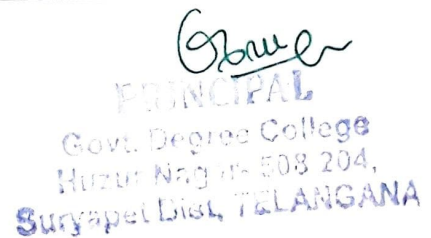 PRINCIPAL
Govt. Degree College
Huzur Nagar - 508 204,
Suryapet Dist, TELANGANA